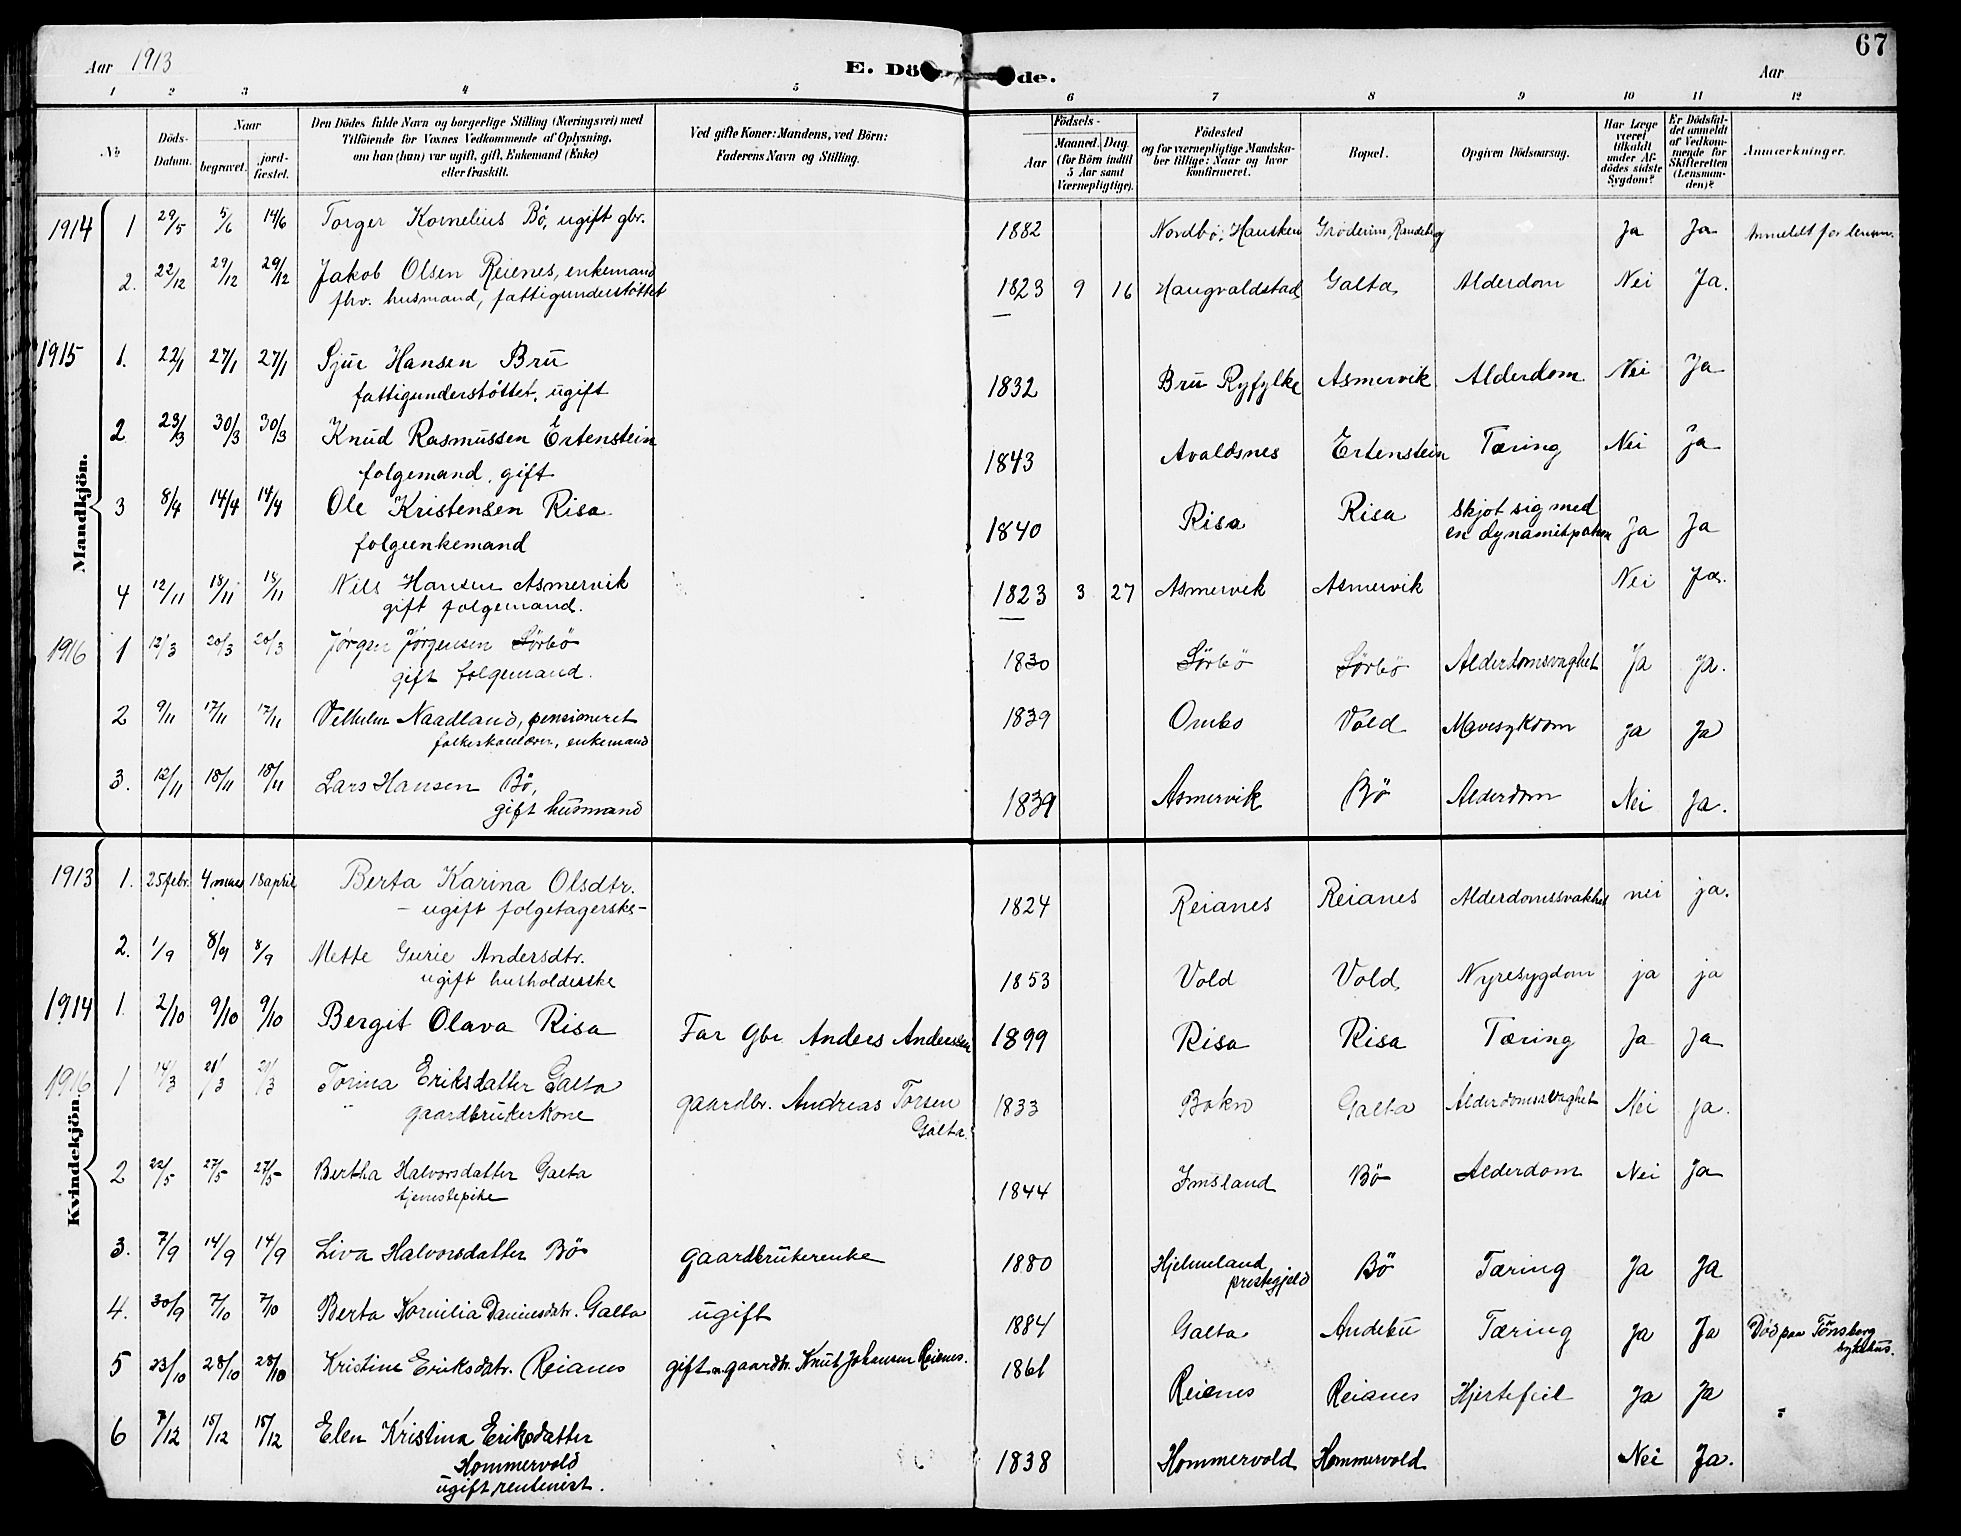 67
Aar 1913 E. Dö de. Aar
1 2 3 4 5 6 7 8 9 10 11 12
No Döds-Datum. Naar begravet. jord-fæstet. Den Dödes fulde Navn og borgerlige Stilling (Næringsvei) med Tilföiende for Voxnes Vedkommende af Oplysning, om han (hun) var ugift, gift, Enkemand (Enke) eller fraskilt. Ved gifte Koner: Mandens, ved Börn: Faderens Navn og Stilling. Födsels- Aar Maaned. Dag. (for Börn indtil 5 Aar samt Værnepligtige). Födested og for værnepligtige Mandska-ber tillige: Naar og hvor konfirmeret. Bopæl. Opgiven Dödsaarsag. Har Læge været tilkaldt under Af-dödes sidste Sygdom? Er Dödsfal-det anmeldt af Vedkom-mende for Skifteretten (Lensman-den)? Anmærkninger.
Mandkjön.
1914 1 29/5 5/6 14/6 Torger Kornelius Bö, ugift gbr. 1882 Nordbö, Hausken Gröderim, Randeberg Ja Ja Anmeldt for lensm.
2. 22/12 29/12 29/12 Jakob Olsen Reienes, enkemand 1823 9 16 Haugvaldstad Galta Alderdom Nei Ja.
fhv. husmand, fattigunderstöttet
1915 1. 22/1 27/1 27/1 Sjur Hansen Bru 1832 Bru Ryfylke Asmervik Alderdom Nei Ja
fattigunderstöttet, ugift
2 23/3 30/3 30/3 Knud Rasmussen Ertenstein 1843 Avaldsnes Ertenstein Tæring Nei Ja
folgemand, gift
3 8/4 14/4 14/4 Ole Kristensen Risa 1840 Risa Risa Skjot sig med en dynamitpatron Ja Ja
folgeenkemand
4 12/11 18/11 18/11 Nils Hansen Asmervik 1823 3 27 Asmervik Asmervik Nei Ja.
gift folgemand.
1916 1 12/3 20/3 20/3 Jørgen Jørgensen Sörbö 1830 Sörbö Sörbö Alderdomsvaghet Ja Ja.
gift folgemand.
2 9/11 17/11 17/11 Vilhelm Naadland, pensioneret 1839 Ombo Vold Mavesykdom Ja Ja
folkeskolelærer, enkemand
3. 12/11 18/11 18/11 Lars Hansen Bö, 1839 Asmervik Bö Alderdom Nei Ja.
gift husmand
Kvindekjön.
1913 1. 25 febr. 4 mars 18 april Berta Karina Olsdtr. 1824 Reianes Reianes Alderdomssvakhet nei ja.
- ugift folgetagerske -
2. 1/9 8/9 8/9 Mette Gurie Andersdtr. 1853 Vold Vold Nyresygdom ja ja
ugift husholderske
1914 1. 2/10 9/10 9/10 Bergit Olava Risa Far Gbr Anders Anderssen 1899 Risa Risa Tæring Ja Ja
1916 1 14/3 21/3 21/3 Torina Eriksdatter Galta gaardbr. Andreas Torsen 1833 Bokn Galta Alderdomsvaghet Nei Ja.
gaardbrukerkone Galta.
2 22/5 27/5 27/5 Bertha Halvorsdatter Galta 1844 Imsland Bö Alderdom Nei Ja
tjenstepike
3. 7/9 14/9 14/9 Liva Halvorsdatter Bö gaardbrukerenke 1880 Hjelmeland prestegjeld Bö Tæring Ja Ja
4. 30/9 7/10 7/10 Berta Kornilia Danielsdatr. Galta ugift 1884 Galta Andebu Tæring Ja Ja Död paa Tönsberg sykehus.
5 23/10 28/10 28/10 Kristine Eriksdatr. Reianes gift m. gaardbr. Knut Johansen Reienes. 1861 Reienes Reianes Hjertefeil Ja Ja
6 7/12 15/12 15/12 Elen Kristina Eriksdatter 1838 Hommervold Hommervold Nei Ja.
Hommervold
ugift, rentenist.